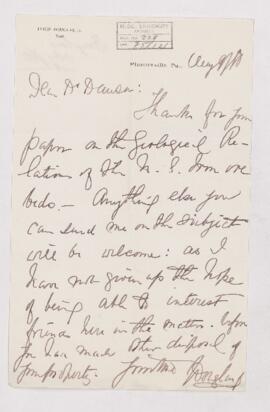 McGILL UNIVERSITY
ARCHIVES
ACC. NO. 909
REF.
Phœnixville, Pa.,
Dear Dr Dawson:
Thanks for your
paper on the Geological Re-
lations of the N. S. Iron ore
beds. – Anything else you
can send me on the subject
will be welcome: as I
have not given up the hope
of being able to interest
friends here in the matter. before
you have made other disposal of
your property.
Yours truly
J Douglas